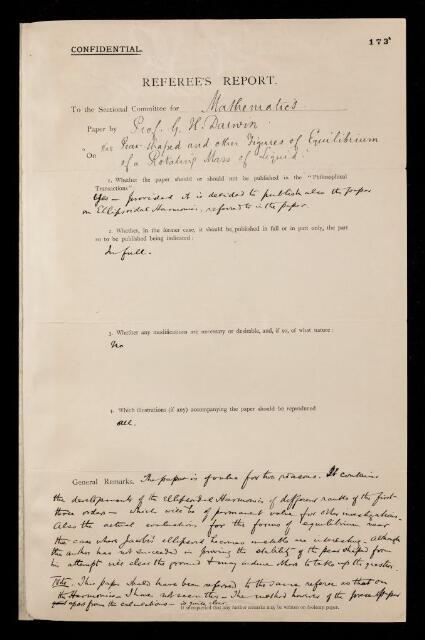 173
CONFIDENTIAL.
REFEREE'S REPORT.
To the Sectional Committee for Mathematics
Paper by Prof. G. H. Darwin
On "the Pear-shaped and other Figures of Equilibrium
of a Rotating Mass of Liquid.
1. Whether the paper should or should not be published in the "Philosophical
Transactions"
Yes – provided it is decided to publish also the paper
on Ellipsoidal Harmonics, referred to in the paper.
2. Whether, in the former case, it should be published in full or in part only, the part
so to be published being indicated:
In full.
3. Whether any modifications are necessary or desirable, and, if so, of what nature:
No
4. Which illustrations (if any) accompanying the paper should be reproduced
All.
General Remarks. The paper is of value for two reasons. It contains
the developments of the Ellipsoidal Harmonics of different ranks of the first
three orders – which will be of permanent value for other investigations.
Also the actual evaluation for the forms of equilibrium near
the case where Jacobi's ellipsoid becomes unstable are interesting – although
the author has not succeeded in proving the stability of the pear shaped form
his attempt will clear the ground & may induce others to take up the question.
Note. This paper should have been referred to the same referee as that on
the Harmonics – I have not seen this – The method however of the present paper
apart from the calculations – is quite clear.
If requested that any further remarks may be written on foolscap paper.